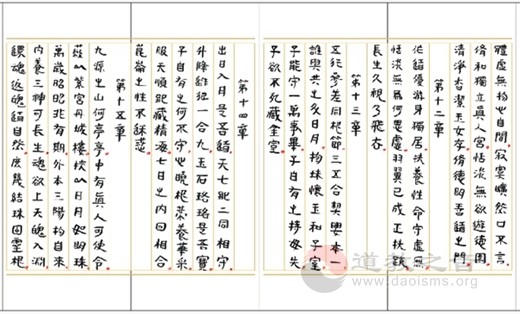 體虛無物心自閒寂寞曠然口不言
修和獨立真人宮恬淡無欲遊德園
清淨香潔玉女存修德明達道之門
第十二章
作道優游身獨居扶養性命守虛無
恬淡無為何思慮羽翼已成正扶疏
長生久視乃飛去
第十三章
五行參差同根節三五合炁要本一
誰與共之升日月抱珠懷玉和子室
子能守一萬事畢子自有之持無失
子欲不死藏金室
第十四章
出日入月是吾道天七地三回相守
升降合九玉石珞珞是吾寶
子自有之何不守心曉根蒂養華采
服天順地藏精海七日之內回相合
崑崙之性不迷惑
第十五章
九源之山何亭亭中有真人可使令
蔽以紫宮丹城樓俠以日月如明珠
萬歲昭昭非有期外本三陽物自來
內養三神可長生魂欲上天魄入淵
還魂返魄道自然庶幾結珠固靈根
道教之音
www.daoisms.org